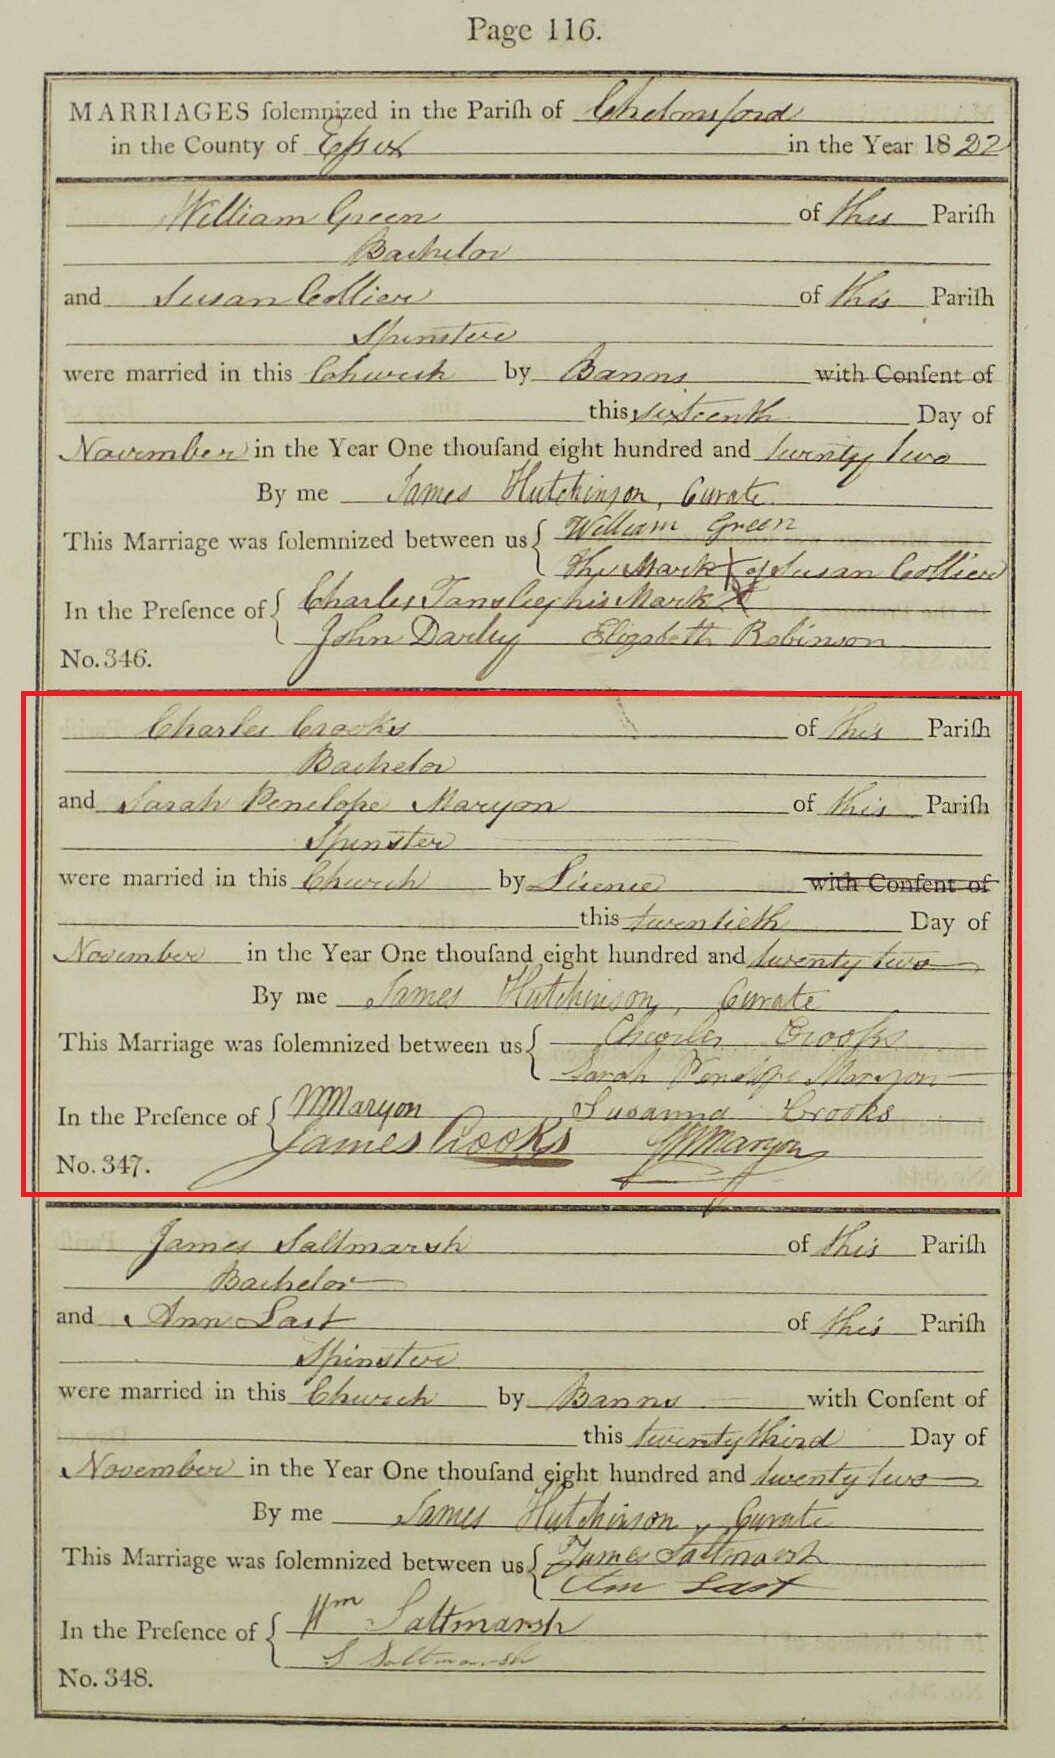 Page 116.
MARRIAGES ſolemnized in the Pariſh of Chelmsford
in the County of Eſsex in the Year 1822
William Green of this Pariſh
Bachelor
and Susan Collier of this Pariſh
Spinster
were married in this Church by Banns with Conſent of
this sixteenth Day of
November in the Year One thouſand eight hundred and twenty two
By me James Hutchinson, Curate
This Marriage was ſolemnized between us { William Green
The Mark X of Susan Collier
In the Preſence of { Charles Tansley his Mark X
John Darby Elizabeth Robinson
No. 346.
Charles Crooks of this Pariſh
Bachelor
and Sarah Penelope Maryon of this Pariſh
Spinster
were married in this Church by Licence with Conſent of
this twentieth Day of
November in the Year One thouſand eight hundred and twenty two
By me James Hutchinson, Curate
This Marriage was ſolemnized between us { Charles Crooks
Sarah Penelope Maryon
In the Preſence of { Maryon Susanna Crooks
James Crooks Maryon
No. 347.
James Saltmarsh of this Pariſh
Bachelor
and Ann Last of this Pariſh
Spinster
were married in this Church by Banns with Conſent of
this twenty third Day of
November in the Year One thouſand eight hundred and twenty two
By me James Hutchinson, Curate
This Marriage was ſolemnized between us { James Saltmarsh
Ann Last
In the Preſence of { Wm Saltmarsh
S Saltmarsh
No. 348.